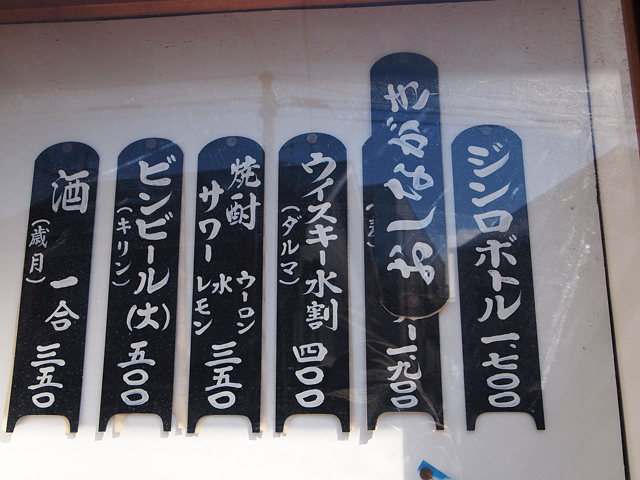 ジンロボトル 一、七〇〇
おしながき
一、九〇〇
ウイスキー水割 四〇〇
(ダルマ)
焼酎
サワー
ウーロン
水
レモン
三五〇
ビンビール(大) 五〇〇
(キリン)
酒 一合 三五〇
(歳月)